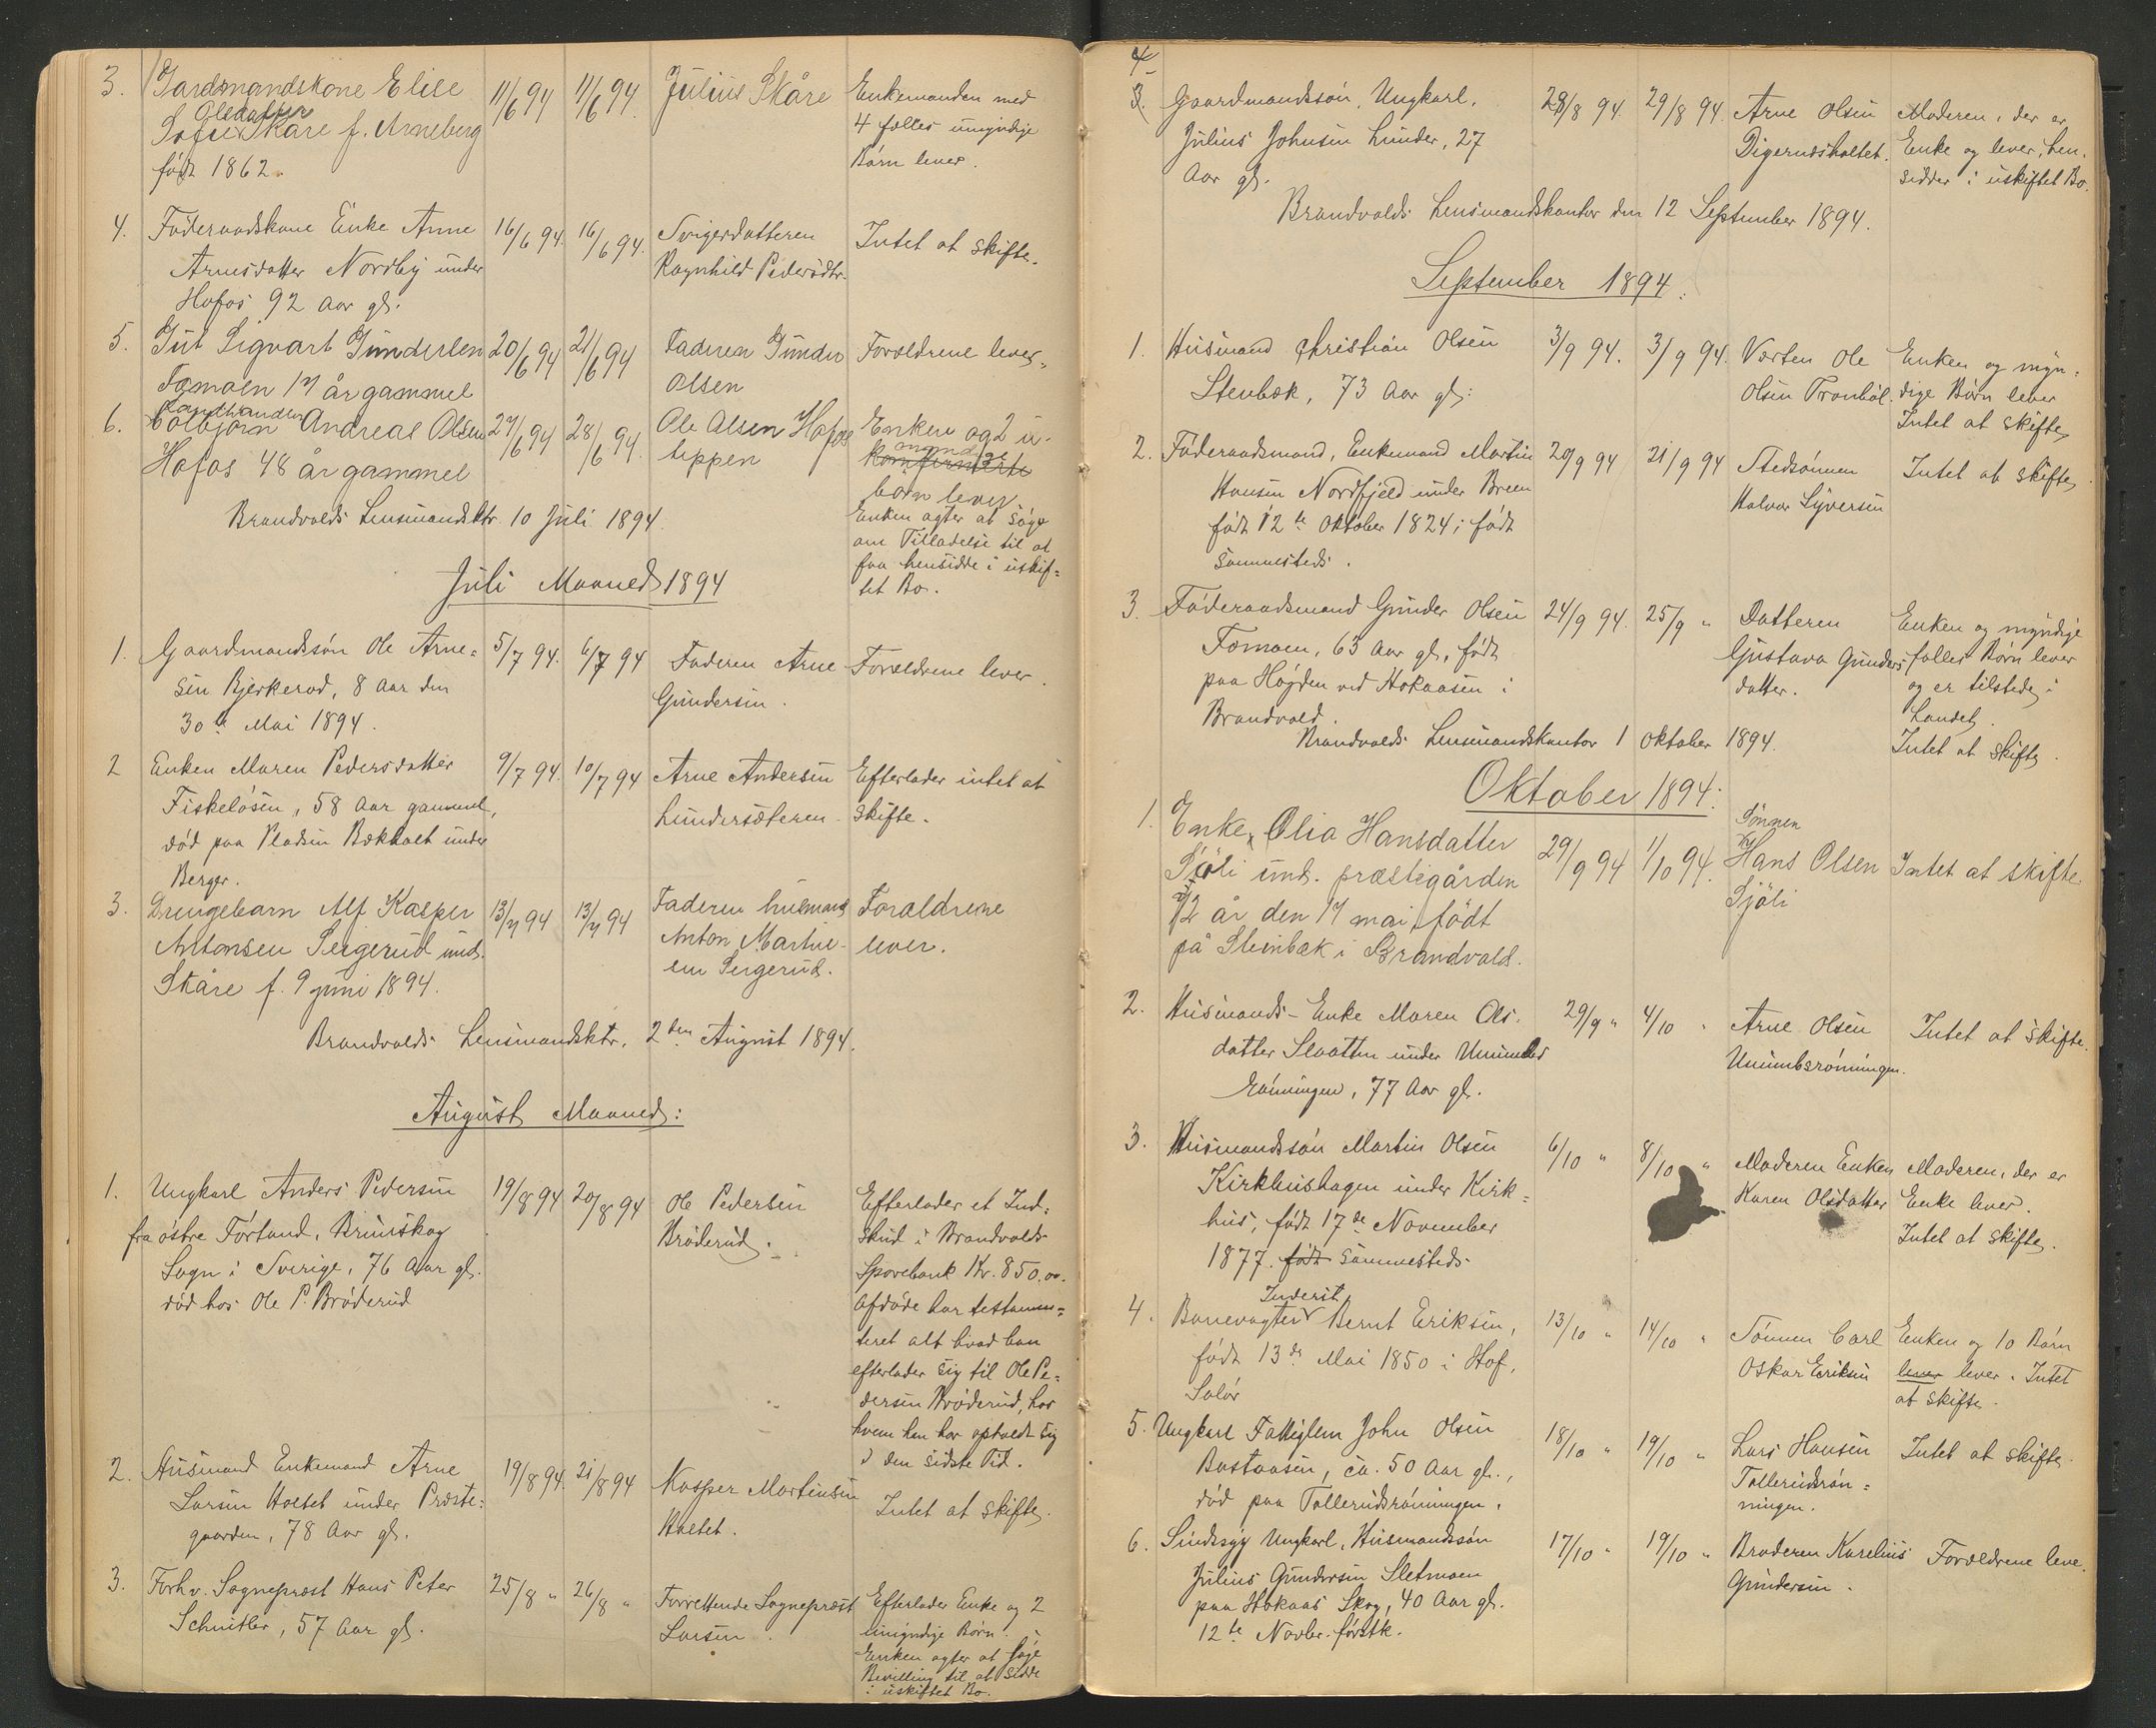 3. Gardsmandskone Elise 11/6 94 11/6 94 Julius Skåre Enkemanden med
Olsdatter
Sofie Skåre f. Arneberg 4 fælles umyndige
født 1862. Børn lever.
4. Føderaadskone Enke Anne 16/6 94. 16/6 94. Svigerdatteren Intet at skifte.
Arnesdatter Nordby under Ragnhild Pedersdtr.
Hofos 92 Aar gl.
5. Gut Sigvart Gundersen 20/6 94 21/6 94 Faderen Gunder Forældrene lever.
Tomoen 17 år gammel Olsen
Landhandler
6. Colbjørn Andreas Olsen 27/6 94 28/6 94. Ole Olsen Hofos Enken og 2 u-
Hofos 48 år gammel teppen konfirmerte
børn lever.
Brandvolds Lensmandsktr. 10 Juli 1894. Enken agter at søge
om Tilladelse til at
faa hensidde i uskif=
tet Bo.
Juli Maaned 1894
1. Gaardmandssøn Ole Arne= 5/7 94. 6/7 94 Faderen Arne Forældrene lever.
sen Bjerkerud, 8 Aar den Gundersen.
30te Mai 1894.
2 Enken Maren Pedersdatter 9/7 94. 10/7 94 Arne Andersen Efterlader intet at
Fiskeløsen, 58 Aar gammel, Lundersæteren skifte.
død paa Pladsen Bækholt under
Berger.
3. Drengebarn Alf Kasper 13/7 94 13/7 94 Faderen husmand Forældrene
Antonsen Sergerud und. Anton Martin- lever.
Skåre f. 9 juni 1894. sen Sergerud.
Brandvolds Lensmandsktr. 2den August 1894.
August Maaned:
1. Ungkarl Anders Pedersen 19/8 94 20/8 94 Ole Pedersen Efterlader et Ind-
fra østre Førtand, Brunskog Brøderud. skud i Brandvolds
Sogn i Sverige, 76 Aar gl. Sparebank Kr. 850.00.
død hos Ole P. Brøderud Afdøde har testamen=
teret alt hvad han
efterlader sig til Ole Pe=
dersen Brøderud, hos
hvem han har opholdt sig
i den sidste Tid.
2. Husmand Enkemand Arne 19/8 94. 21/8 94 Kasper Martinsen Intet at skifte.
Larsen Holtet under Præste= Holtet.
gaarden, 78 Aar gl.
3. Forhv. Sogneprest Hans Peter 25/8 " 26/8 " Forrettende Sogneprest Efterlader Enke og 2
Schnitler, 57 Aar gl. Larsen. umyndige Børn.
Enken agter at søge
Bevilling til at sidde
i uskiftet Bo.
4
3. Gaardmandssøn, Ungkarl, 28/8 94. 29/8 94. Arne Olsen Moderen, der er
Julius Johnsen Lunder, 27 Digerudsholtet. Enke og lever, hen-
Aar gl. sidder i uskiftet Bo.
Brandvolds Lensmandskontor den 12 September 1894.
September 1894.
1. Husmand Christian Olsen 3/9 94. 3/9 94. Værten Ole Enken og myn-
Stenbæk, 73 Aar gl. Olsen Tronbøl. dige Børn lever
Intet at skifte.
2. Føderaadsmand, Enkemand Martin 20/9 94 21/9 94 Stedsønnen Intet at skifte.
Hansen Nordfjeld under Breen Halvor Syversen
født 12te Oktober 1824; født
sammesteds.
3 Føderaadsmand Gunder Olsen 24/9 94. 25/9 " Datteren Enken og myndige
Tomoen, 63 Aar gl., født Gustava Gunders- fælles Børn lever
paa Høgden ved Hokaasen i datter. og er tilstede i
Brandvold. Landet.
Brandvolds Lensmandskontor 1 Oktober 1894. Intet at skifte.
Oktober 1894.
Sønnen
1. Enke Olia Hansdatter 29/9 94 1/10 94. Hans Olsen Intet at skifte.
Sjøli und. præstegården Sjöli
72 år den 17 mai, født
på Steinbæk i Brandvold.
2. Husmands-Enke Maren Ols- 29/9 " 4/10 " Arne Olsen Intet at skifte.
datter Slaatten under Ummebs Ummebsrønningen.
rønningen, 77 Aar gl.
3. Husmandssøn Martin Olsen 6/10 " 8/10 " Moderen Enken Moderen, der er
Kirkhushagen under Kirk= Karen Olsdatter Enke lever.
hus, født 17de November Intet at skifte.
1877. født sammesteds
Inderst
4. Banevogter Bernt Eriksen, 13/10 " 14/10 " Sønnen Carl Enken og 10 Børn
født 13de Mai 1850 i Hof, Oskar Eriksen lever lever. Intet
Solør at skifte.
5. Ungkarl Fattiglem John Olsen 18/10 " 19/10 " Lars Hansen Intet at skifte.
Bastaasen, ca. 50 Aar gl., Tollerudsrøn=
død paa Tollerudsrønningen. ningen.
6. Sindssyg Ungkarl, Husmandssøn 17/10 " 19/10 " Broderen Karelius Forældrene leve.
Julius Gundersen Sletmoen Gundersen.
paa Hokaas Skog, 40 Aar gl.
12te Novbr. førstk.